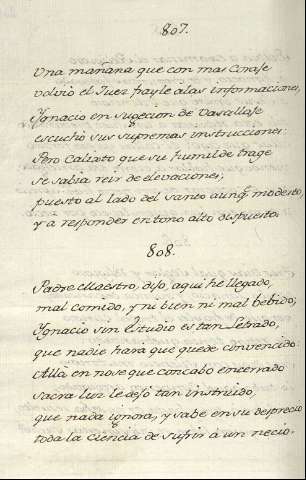 807.
Una mañana que con mas Coraje
volvio el Juez frayle a las informaciones,
Ygnacio en sugecion de Vasallaje
escuchó sus supremas instrucciones:
Pero Calixto que su humilde trage
se sabia reir de elevaciones,
puesto al lado del santo aunq̃ modesto,
y a responder en tono alto dispuesto.
808.
Padre Maestro, dijo, aqui he llegado,
mal comido, y ni bien ni mal bebido;
Ygnacio sin estudio es tan Letrado,
que nadie hará que quede convencido:
Allá en no se que concabo encerrado
sacra luz le dejó tan instruido,
que nada ignora, y sabe en su desprecio
toda la Ciencia de sufrir a un necio.